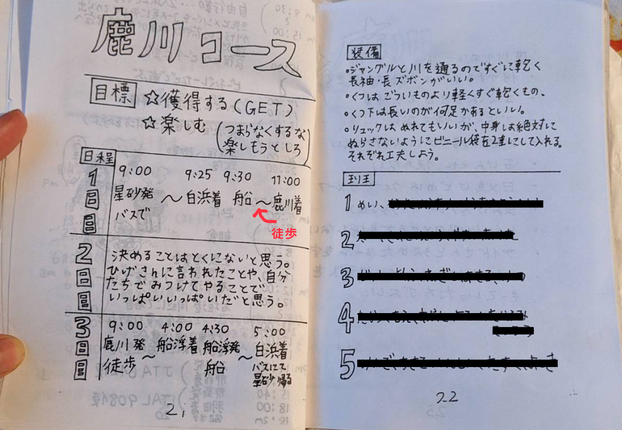 鹿川コース
目標
☆獲得する(GET)
☆楽しむ(つまらなくするな
楽しもうとしろ)
日程
1日目
9:00 9:25 9:30 11:00
星砂発 〜 白浜着 船 〜 鹿川着
バスで
徒歩
2日目
決めることはとくにないと思う。
ひげさんに言われたことや、自分
たちでみつけてやることで
いっぱいいっぱいだと思う。
3日目
9:00 4:00 4:30 5:00
鹿川発 〜 船浮着 船浮発 〜 白浜着
徒歩 船 バスにて
星砂帰る
21
装備
・ジャングルと川を通るのですぐに乾く
長袖・長ズボンがいい。
・くつはごういものより軽くすぐ乾くもの、
・くつ下は長いのが何足かあるといい。
・リュックはぬれてもいいが、中身は絶対に
ぬらさないようにビニール袋を2重にして入れる。
それぞれ工夫しよう。
班
1 めい、
2
3
4
5
22